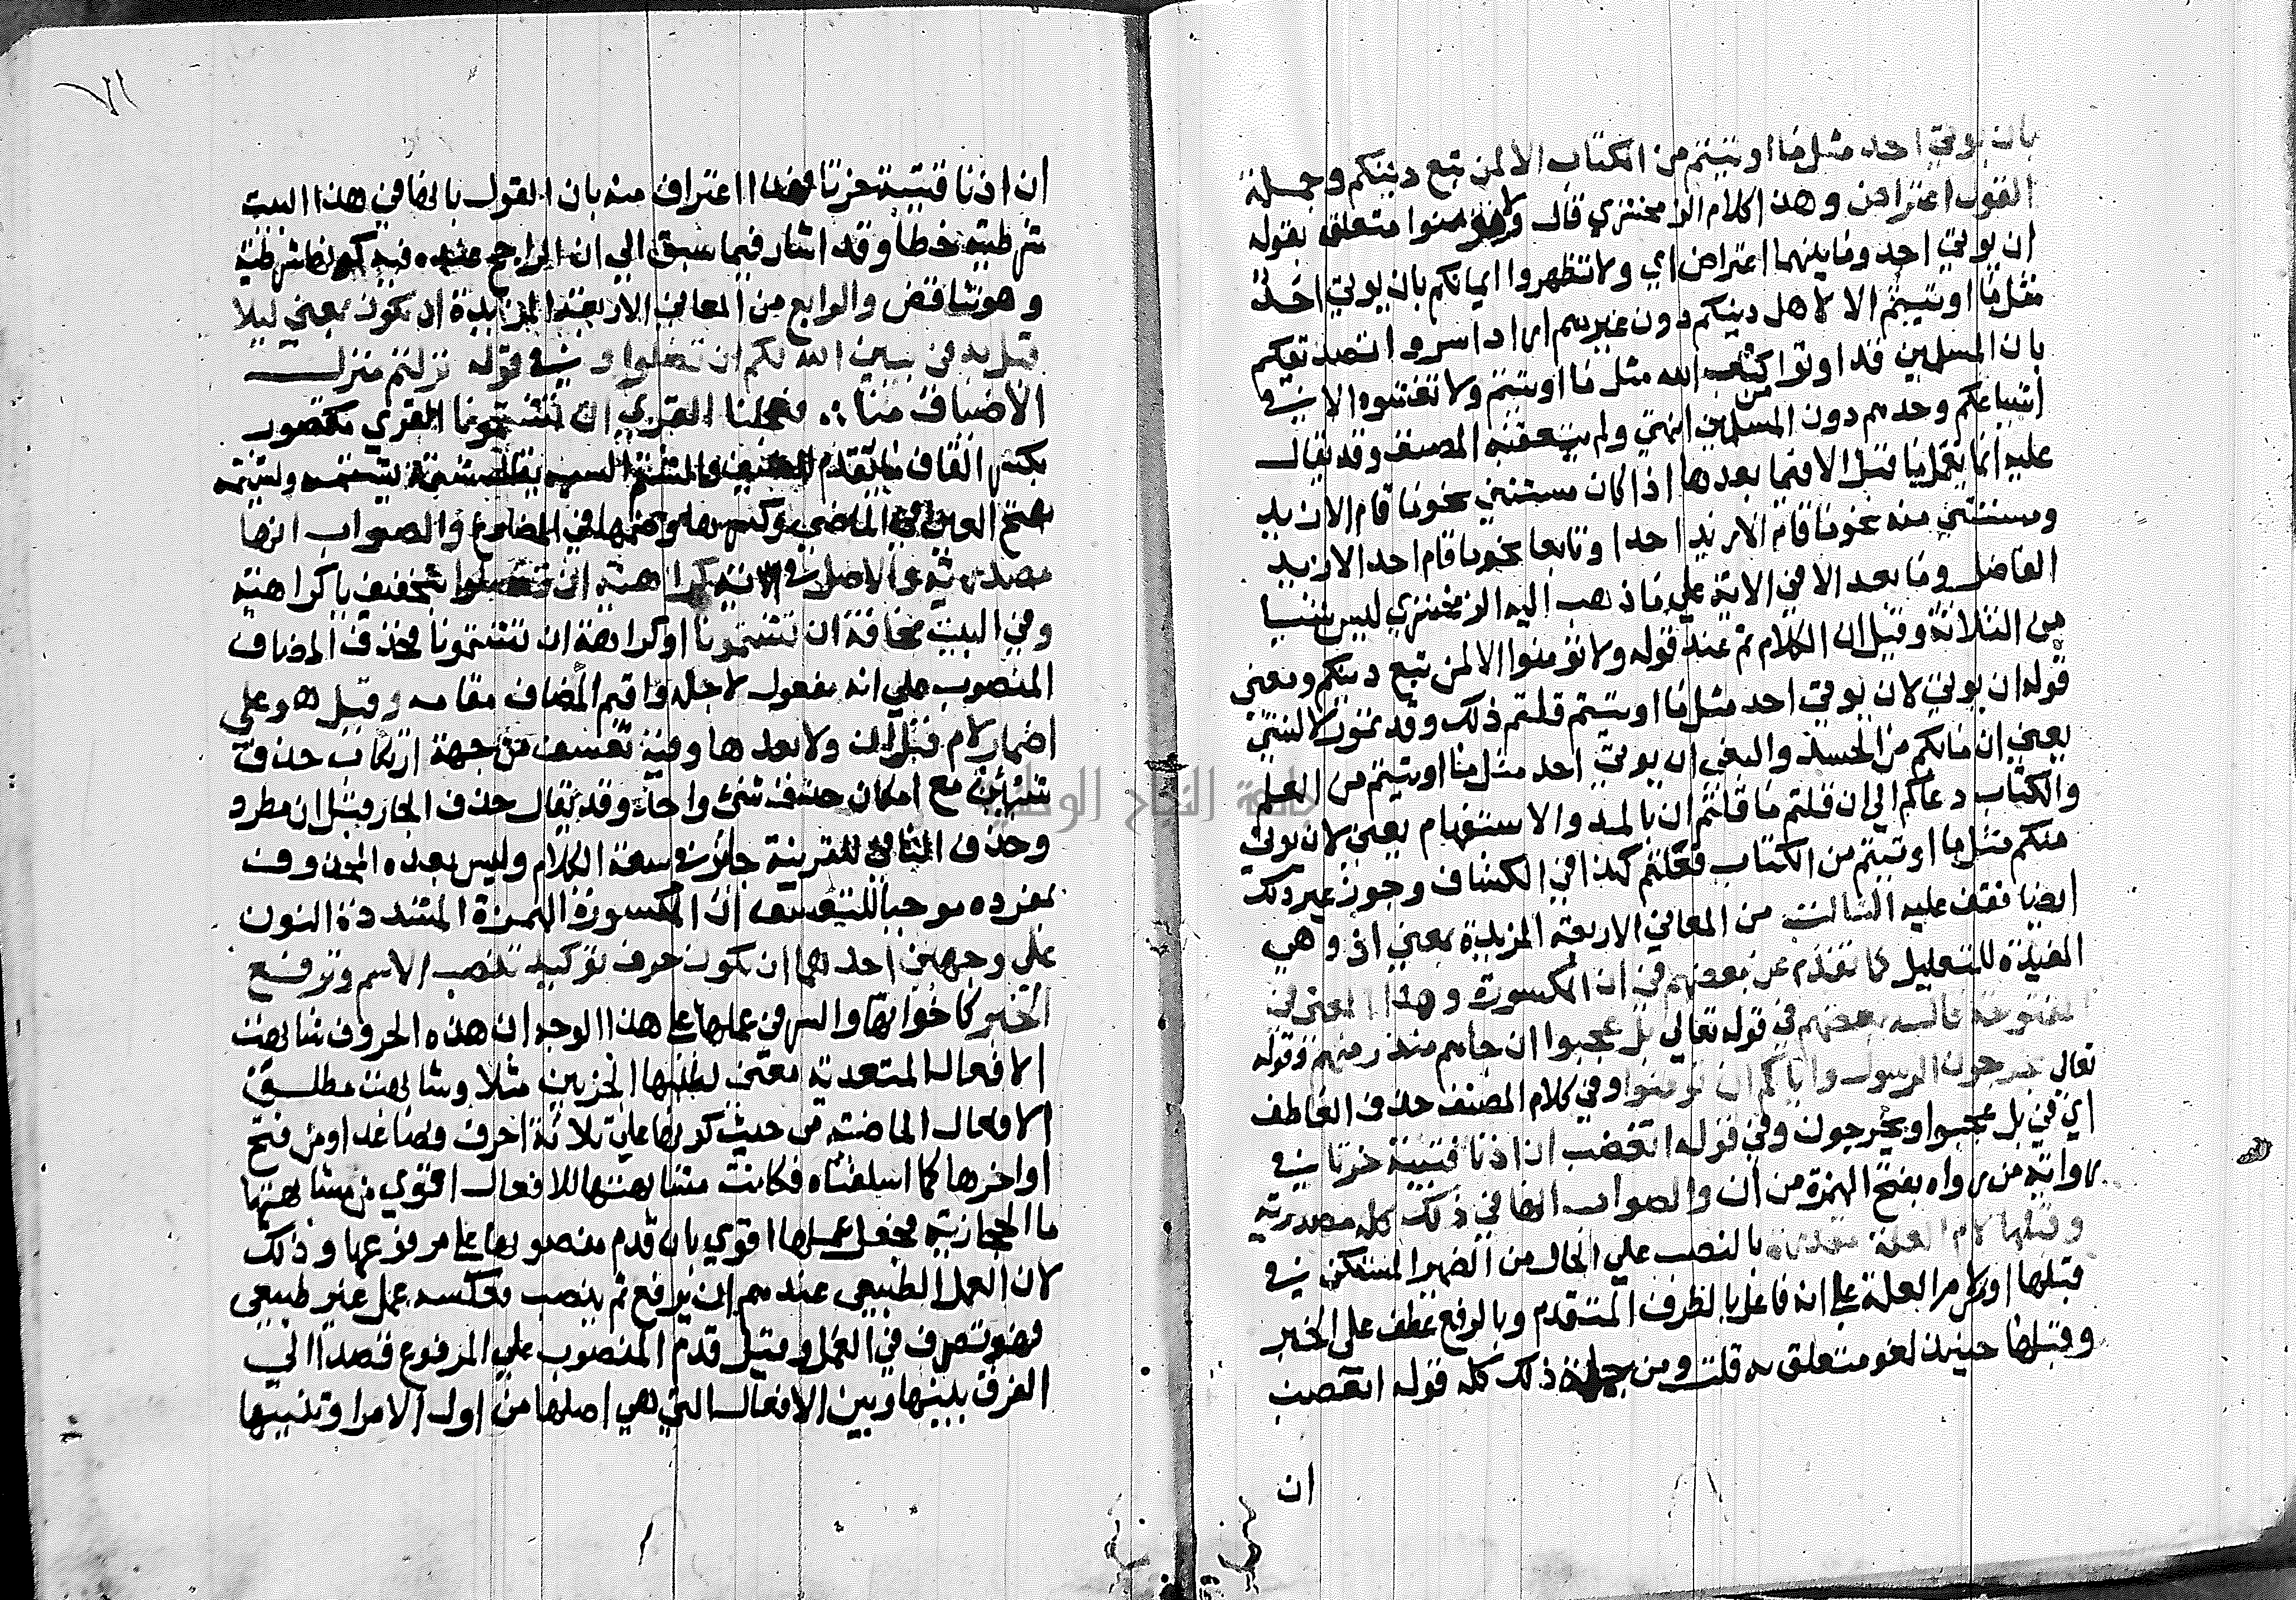 بان يوتي احد مثل ما اوتيتم من الكتاب الا لمن تبع دينكم وجملة
القول اعتراض وهذا كلام الزمخشري قال ولا تومنوا متعلق بقوله
ان يوتي احد وما بينهما اعتراض اي ولا تظهروا ايمانكم بان يوتي احد
مثل ما اوتيتم الا لاهل دينكم دون غيرهم اراد اسروا تصديقكم
بان المسلمين قد اوتوا من كتاب الله مثل ما اوتيتم ولا تفشوه الا في
اشياعكم وحدهم دون المسلمين انتهي ولم يتعقبه المصنف وقد يقال
عليه انما يعمل ما قبل الا فيما بعدها اذا كان مستثني نحو ما قام الا زيد
ومستثني منه نحو ما قام الا زيد احد او تابعا نحو ما قام احد الا زيد
الفاضل وما بعد الا في الاية علي ما ذهب اليه الزمخشري ليس شيئا
من الثلاثة وقيل ان الكلام تم عند قوله ولا تؤمنوا الا لمن تبع دينكم ومعني
قوله ان يوتي لان يوتي احد مثل ما اوتيتم قلتم ذلك وقد تمون لا لشئ
يعني ان مابكم من الحسد والبغي ان يوتي احد مثل ما اوتيتم من العلم
والكتاب دعاكم الي ان قلتم ما قلتم ان بالمد والاستفهام يعني لان يوتي
منكم مثل ما اوتيتم من الكتاب قلتم كذا في الكشاف وجوز غير ذلك
ايضا فقف عليه الثالث من المعاني الاربعة المزيدة بمعني اذ وهي
المفيدة للتعليل كما تقدم عن بعضهم في ان المكسورة وهذا المعني في
المفتوحة قاله بعضهم في قوله تعالي بل عجبوا ان جاهم منذر منهم وقوله
تعالي يخرجون الرسول واياكم ان تومنوا وفي كلام المصنف حذف العاطف
اي في بل عجبوا ويخرجون وفي قوله اتغضب ان اذنا قتيبة حزتا في
رواية من رواه بفتح الهمزة من ان والصواب انها في ذلك كله مصدرية
وقبلها لام العلة مقدرة بالنصب علي الحال من الضمير المستكن في
قبلها او لام العلة علي انه فاعل بالظرف المتقدم وبالرفع عطف علي الخبر
وقبلها حينئذ لغو متعلق به قلت ومن جملة ذلك كله قوله اتغضب
ان
ان اذنا قتيبة حزتا فهذا اعتراف منه بان القول بانها في هذا البيت
شرطية خطأ وقد اشار فيما سبق الي ان الراجح عنده فيه كونها شرطية
وهو تناقض والرابع من المعاني الاربعة المزيدة ان تكون بمعني ليلا
قيل به في يبين الله لكم ان تضلوا و في قوله نزلتم منزل
الاضياف منا ∴ فعجلنا القري ان تشتمونا القري مقصور
بكسر القاف ما تقدم للضيف والشتم السب يقال شتمه يشتمه ويشتمه
بفتح العين في الماضي وكسرها وضمها في المضارع والصواب انها
مصدرية والاصل في الاية كراهية ان تضلوا بتخفيف يا كراهية
وفي البيت مخافة ان تشتمونا او كراهة ان تشتمونا فحذف المضاف
المنصوب علي انه مفعول لاجله واقيم المضاف مقامه وقيل هو علي
اضمار لام قبل ان ولا بعدها وفيه تعسف من جهة ارتكاب حذف
شيئين مع امكان حذف شئ واحد وقد يقال حذف الجار قبل ان مطرد
وحذف النافي للقرينة جائز في سعة الكلام وليس بعده المحذوف
بمفرده موجبا للتعسف ان المكسورة الهمزة المشددة النون
علي وجهين احدهما ان تكون حرف توكيد تنصب الاسم وترفع
الخبر كاخواتها والسر في عملها علي هذا الوجه ان هذه الحروف شابهت
الافعال المتعدية معني لطلبها الجزئين مثلا وشابهت مطلق
الافعال الماضية من حيث كونها علي ثلاثة احرف وصاعدا ومن فتح
اواخرها كما اسلفناه فكانت مشابهتها للافعال اقوي من مشابهتها
ما الحجازية فجعل عملها اقوي بان قدم منصوبها علي مرفوعها وذلك
لان العمل الطبيعي عندهم ان يرفع ثم ينصب فعكسه عمل غير طبيعي
فهو تصرف في العمل وقيل قدم المنصوب علي المرفوع قصدا الي
الفرق بينها وبين الافعال التي هي اصلها من اول الامر او تنبيها
جامعة النجاح الوطنية